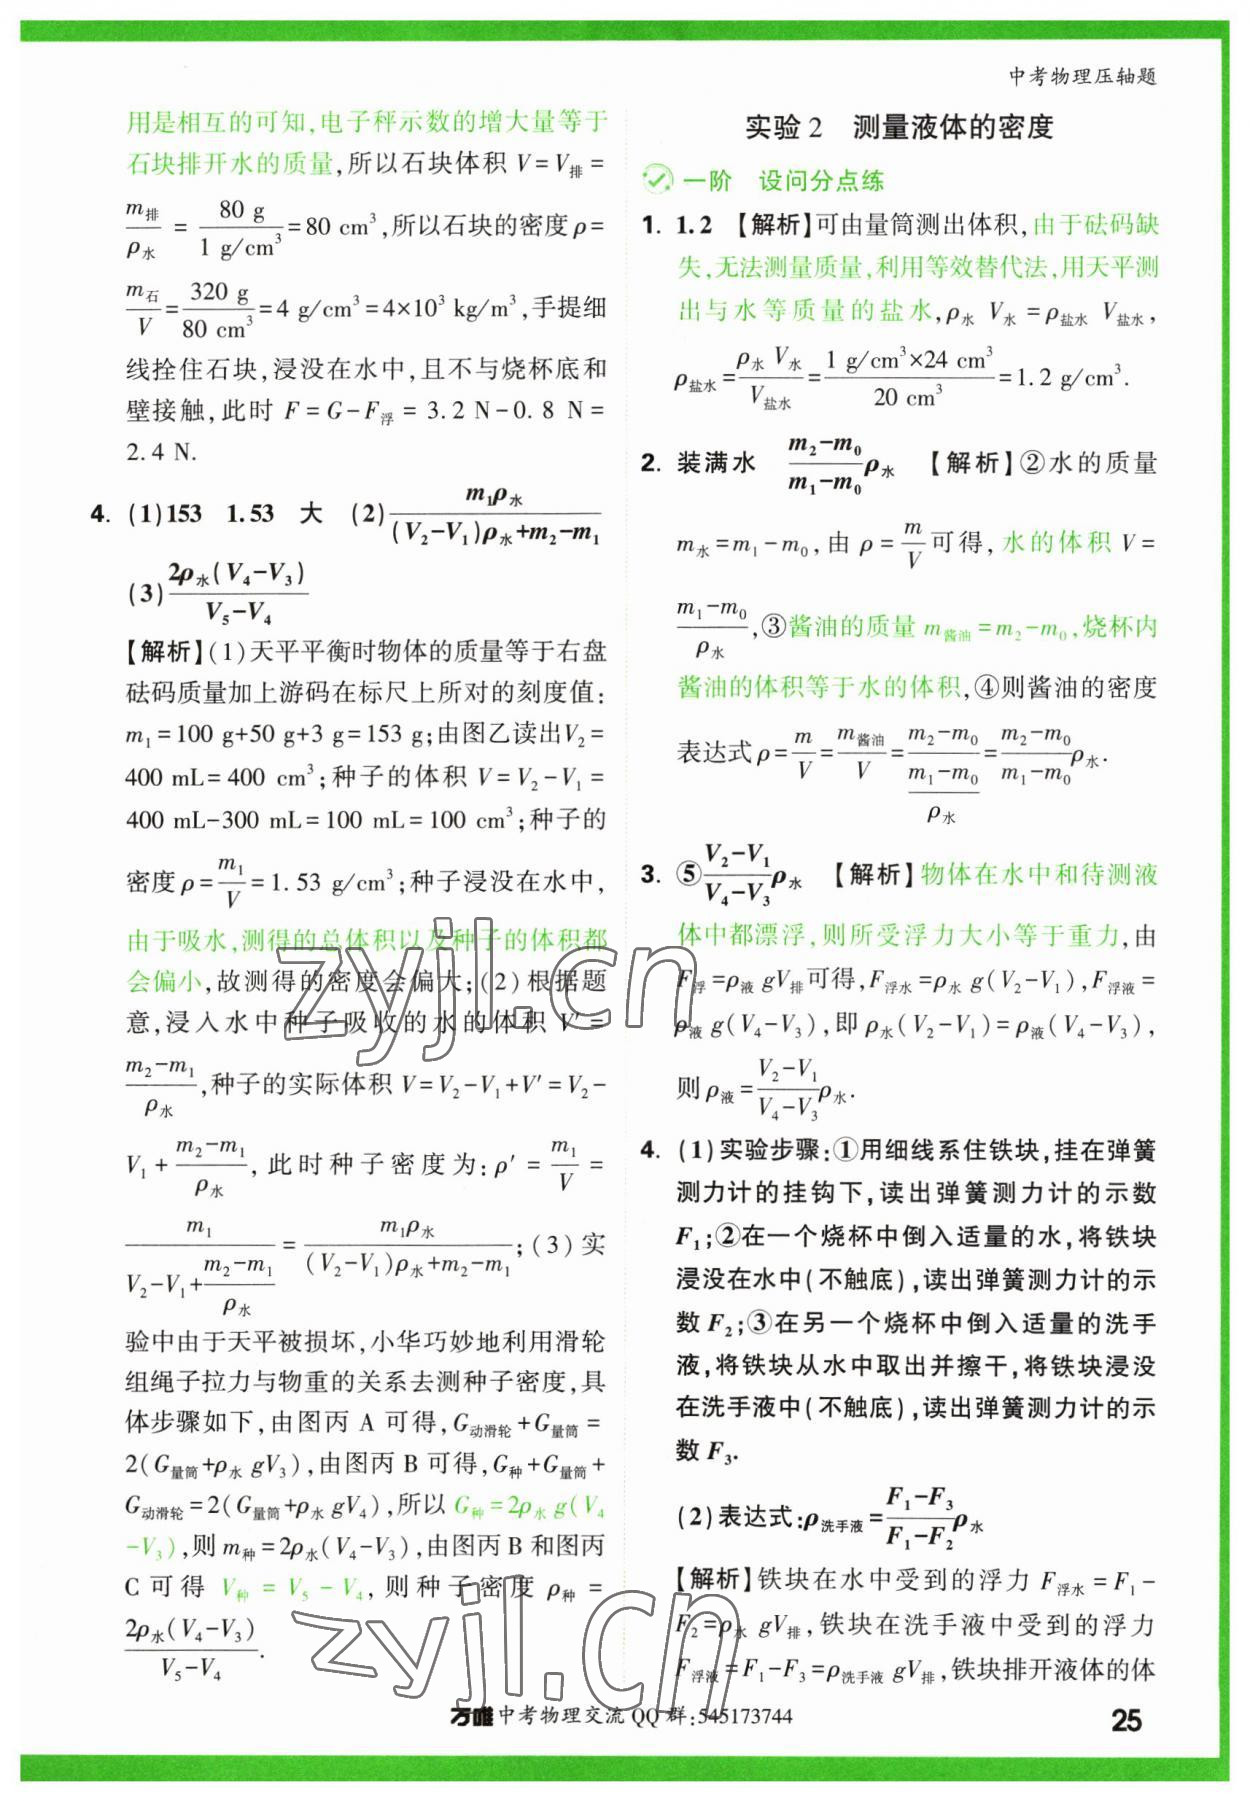 中考物理压轴题
用是相互的可知,电子秤示数的增大量等于
石块排开水的质量,所以石块体积 V=V排=
m排/ρ水 = 80 g/1 g/cm³ =80 cm³,所以石块的密度 ρ=
m石/V = 320 g/80 cm³ =4 g/cm³=4×10³ kg/m³,手提细
线拴住石块,浸没在水中,且不与烧杯底和
壁接触,此时 F=G-F浮=3.2 N-0.8 N=
2.4 N.
4. (1)153 1.53 大 (2) m₁ρ水/(V₂-V₁)ρ水+m₂-m₁
(3) 2ρ水(V₄-V₃)/V₅-V₄
【解析】(1)天平平衡时物体的质量等于右盘
砝码质量加上游码在标尺上所对的刻度值:
m₁=100 g+50 g+3 g=153 g;由图乙读出V₂=
400 mL=400 cm³;种子的体积 V=V₂-V₁=
400 mL-300 mL=100 mL=100 cm³;种子的
密度 ρ= m₁/V =1.53 g/cm³;种子浸没在水中,
由于吸水,测得的总体积以及种子的体积都
会偏小,故测得的密度会偏大;(2)根据题
意,浸入水中种子吸收的水的体积 V′=
m₂-m₁/ρ水,种子的实际体积 V=V₂-V₁+V′=V₂-
V₁+ m₂-m₁/ρ水,此时种子密度为:ρ′= m₁/V =
m₁/V₂-V₁+ m₂-m₁/ρ水 = m₁ρ水/(V₂-V₁)ρ水+m₂-m₁;(3)实
验中由于天平被损坏,小华巧妙地利用滑轮
组绳子拉力与物重的关系去测种子密度,具
体步骤如下,由图丙 A 可得,G动滑轮+G量筒=
2(G量筒+ρ水gV₃),由图丙 B 可得,G种+G量筒+
G动滑轮=2(G量筒+ρ水gV₄),所以 G种=2ρ水g(V₄
-V₃),则 m种=2ρ水(V₄-V₃),由图丙 B 和图丙
C 可得 V种=V₅-V₄,则种子密度 ρ种=
2ρ水(V₄-V₃)/V₅-V₄.
实验2 测量液体的密度
一阶 设问分点练
1. 1.2 【解析】可由量筒测出体积,由于砝码缺
失,无法测量质量,利用等效替代法,用天平测
出与水等质量的盐水,ρ水 V水=ρ盐水 V盐水,
ρ盐水= ρ水 V水/V盐水 = 1 g/cm³×24 cm³/20 cm³ =1.2 g/cm³.
2. 装满水 m₂-m₀/m₁-m₀ ρ水 【解析】②水的质量
m水=m₁-m₀,由 ρ= m/V 可得,水的体积 V=
m₁-m₀/ρ水,③酱油的质量 m酱油=m₂-m₀,烧杯内
酱油的体积等于水的体积,④则酱油的密度
表达式 ρ= m/V = m酱油/V = m₂-m₀/(m₁-m₀/ρ水) = m₂-m₀/m₁-m₀ ρ水.
3. ⑤ V₂-V₁/V₄-V₃ ρ水 【解析】物体在水中和待测液
体中都漂浮,则所受浮力大小等于重力,由
F浮=ρ液gV排可得,F浮水=ρ水g(V₂-V₁),F浮液=
ρ液g(V₄-V₃),即 ρ水(V₂-V₁)=ρ液(V₄-V₃),
则 ρ液= V₂-V₁/V₄-V₃ ρ水.
4. (1)实验步骤:①用细线系住铁块,挂在弹簧
测力计的挂钩下,读出弹簧测力计的示数
F₁;②在一个烧杯中倒入适量的水,将铁块
浸没在水中(不触底),读出弹簧测力计的示
数 F₂;③在另一个烧杯中倒入适量的洗手
液,将铁块从水中取出并擦干,将铁块浸没
在洗手液中(不触底),读出弹簧测力计的示
数 F₃.
(2)表达式:ρ洗手液= F₁-F₃/F₁-F₂ ρ水
【解析】铁块在水中受到的浮力 F浮水=F₁-
F₂=ρ水gV排,铁块在洗手液中受到的浮力
F浮液=F₁-F₃=ρ洗手液gV排,铁块排开液体的体
zyjl.cn
zyjl.cn
万唯中考物理交流QQ群:545173744
25